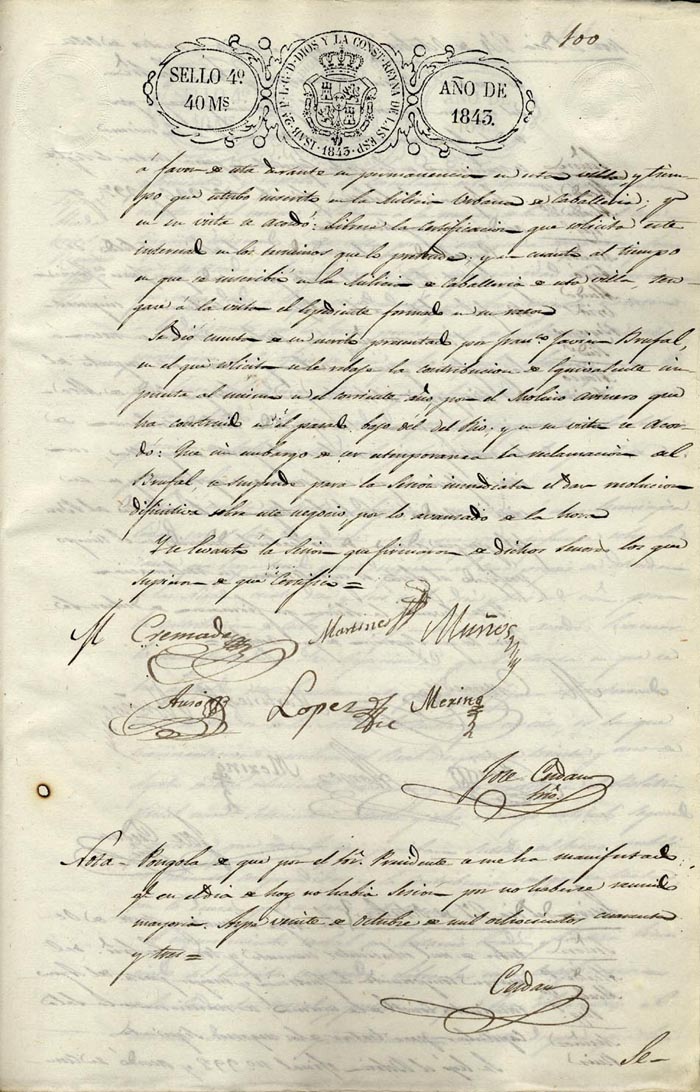 100
SELLO 4º
40 Ms
ISAB. 2ª P. L. G. D. DIOS Y LA CONST. REYNA DE LAS ESP.
1843
AÑO DE
1843.
á favor de esta durante su permanencia en esta villa y tiem-
po que estubo inscrito en la Milicia Urbana de Caballeria; y
en su vista se acordó: Librese la Certificacion que solicita este
interesad en los terminos que lo ; y en cuanto al tiempo
en que se inscribió en la Milicia de Caballeria de esta villa, ten-
gase á la vista el Espediente formad en su razon
Se dió cuenta de un escrito presentad por Franco. Javier Brufal,
en el que solicita se le rebaje la contribucion de Equivalente im-
puesta al mismo en el corriente año por el Molino arinero que
ha construid en el pasad bajo del del Rio; y en su vista se Acor-
dó: Que sin embargo de ser estemporanea la reclamacion del
Brufal, se suspende para la Sesion inmediata el dar resolucion
difinitiva sobre este negocio por lo avanzado de la hora
Y se levantó la Sesion que firmaron de dichos Senores los que
supieron de que Certifico =
M Cremades
Martinez
Muños
Asno
Lopez
Mexina
Jose Cerdan
Srio.
Nota - Pongola de que por el Sr. Presidente se me ha manifestad
qe en el dia de hoy no habia Sesion por no haberse reunid
mayoria. Aspe veinte de Octubre de mil ochocientos cuarenta
y tres =
Cerdan
Se-